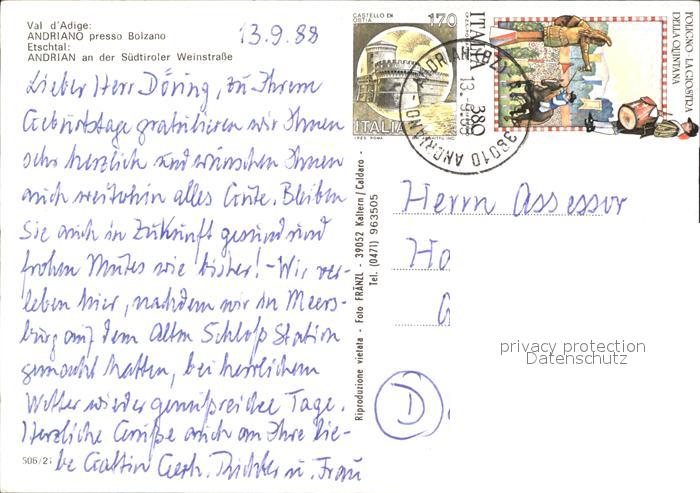 Val d'Adige:
ANDRIANO presso Bolzano
Etschtal:
ANDRIAN an der Südtiroler Weinstraße
13.9.88
Lieber Herr Döring, zu Ihrem
Geburtstage gratulieren wir Ihnen
sehr herzlich und wünschen Ihnen
auch weiterhin alles Gute. Bleiben
Sie auch in Zukunft gesund und
frohen Mutes wie bisher! - Wir ver-
leben hier, nachdem wir in Meers-
burg auf dem Alten Schloß Station
gemacht hatten, bei herrlichem
Wetter wieder genußreiche Tage.
Herzliche Grüße auch an Ihre lie-
be Gattin Gerh. Richter u. Frau
506/2
Riproduzione vietata - Foto FRÄNZL - 39052 Kaltern/Caldaro -
Tel. (0471) 963505
CASTELLO DI
OSTIA
170
ITALIA
ITALIA 380
FOLIGNO · LA GIOSTRA
DELLA QUINTANA
39010 ANDRIANO
13.9.88
Herrn Assessor
Ho
D
privacy protection
Datenschutz